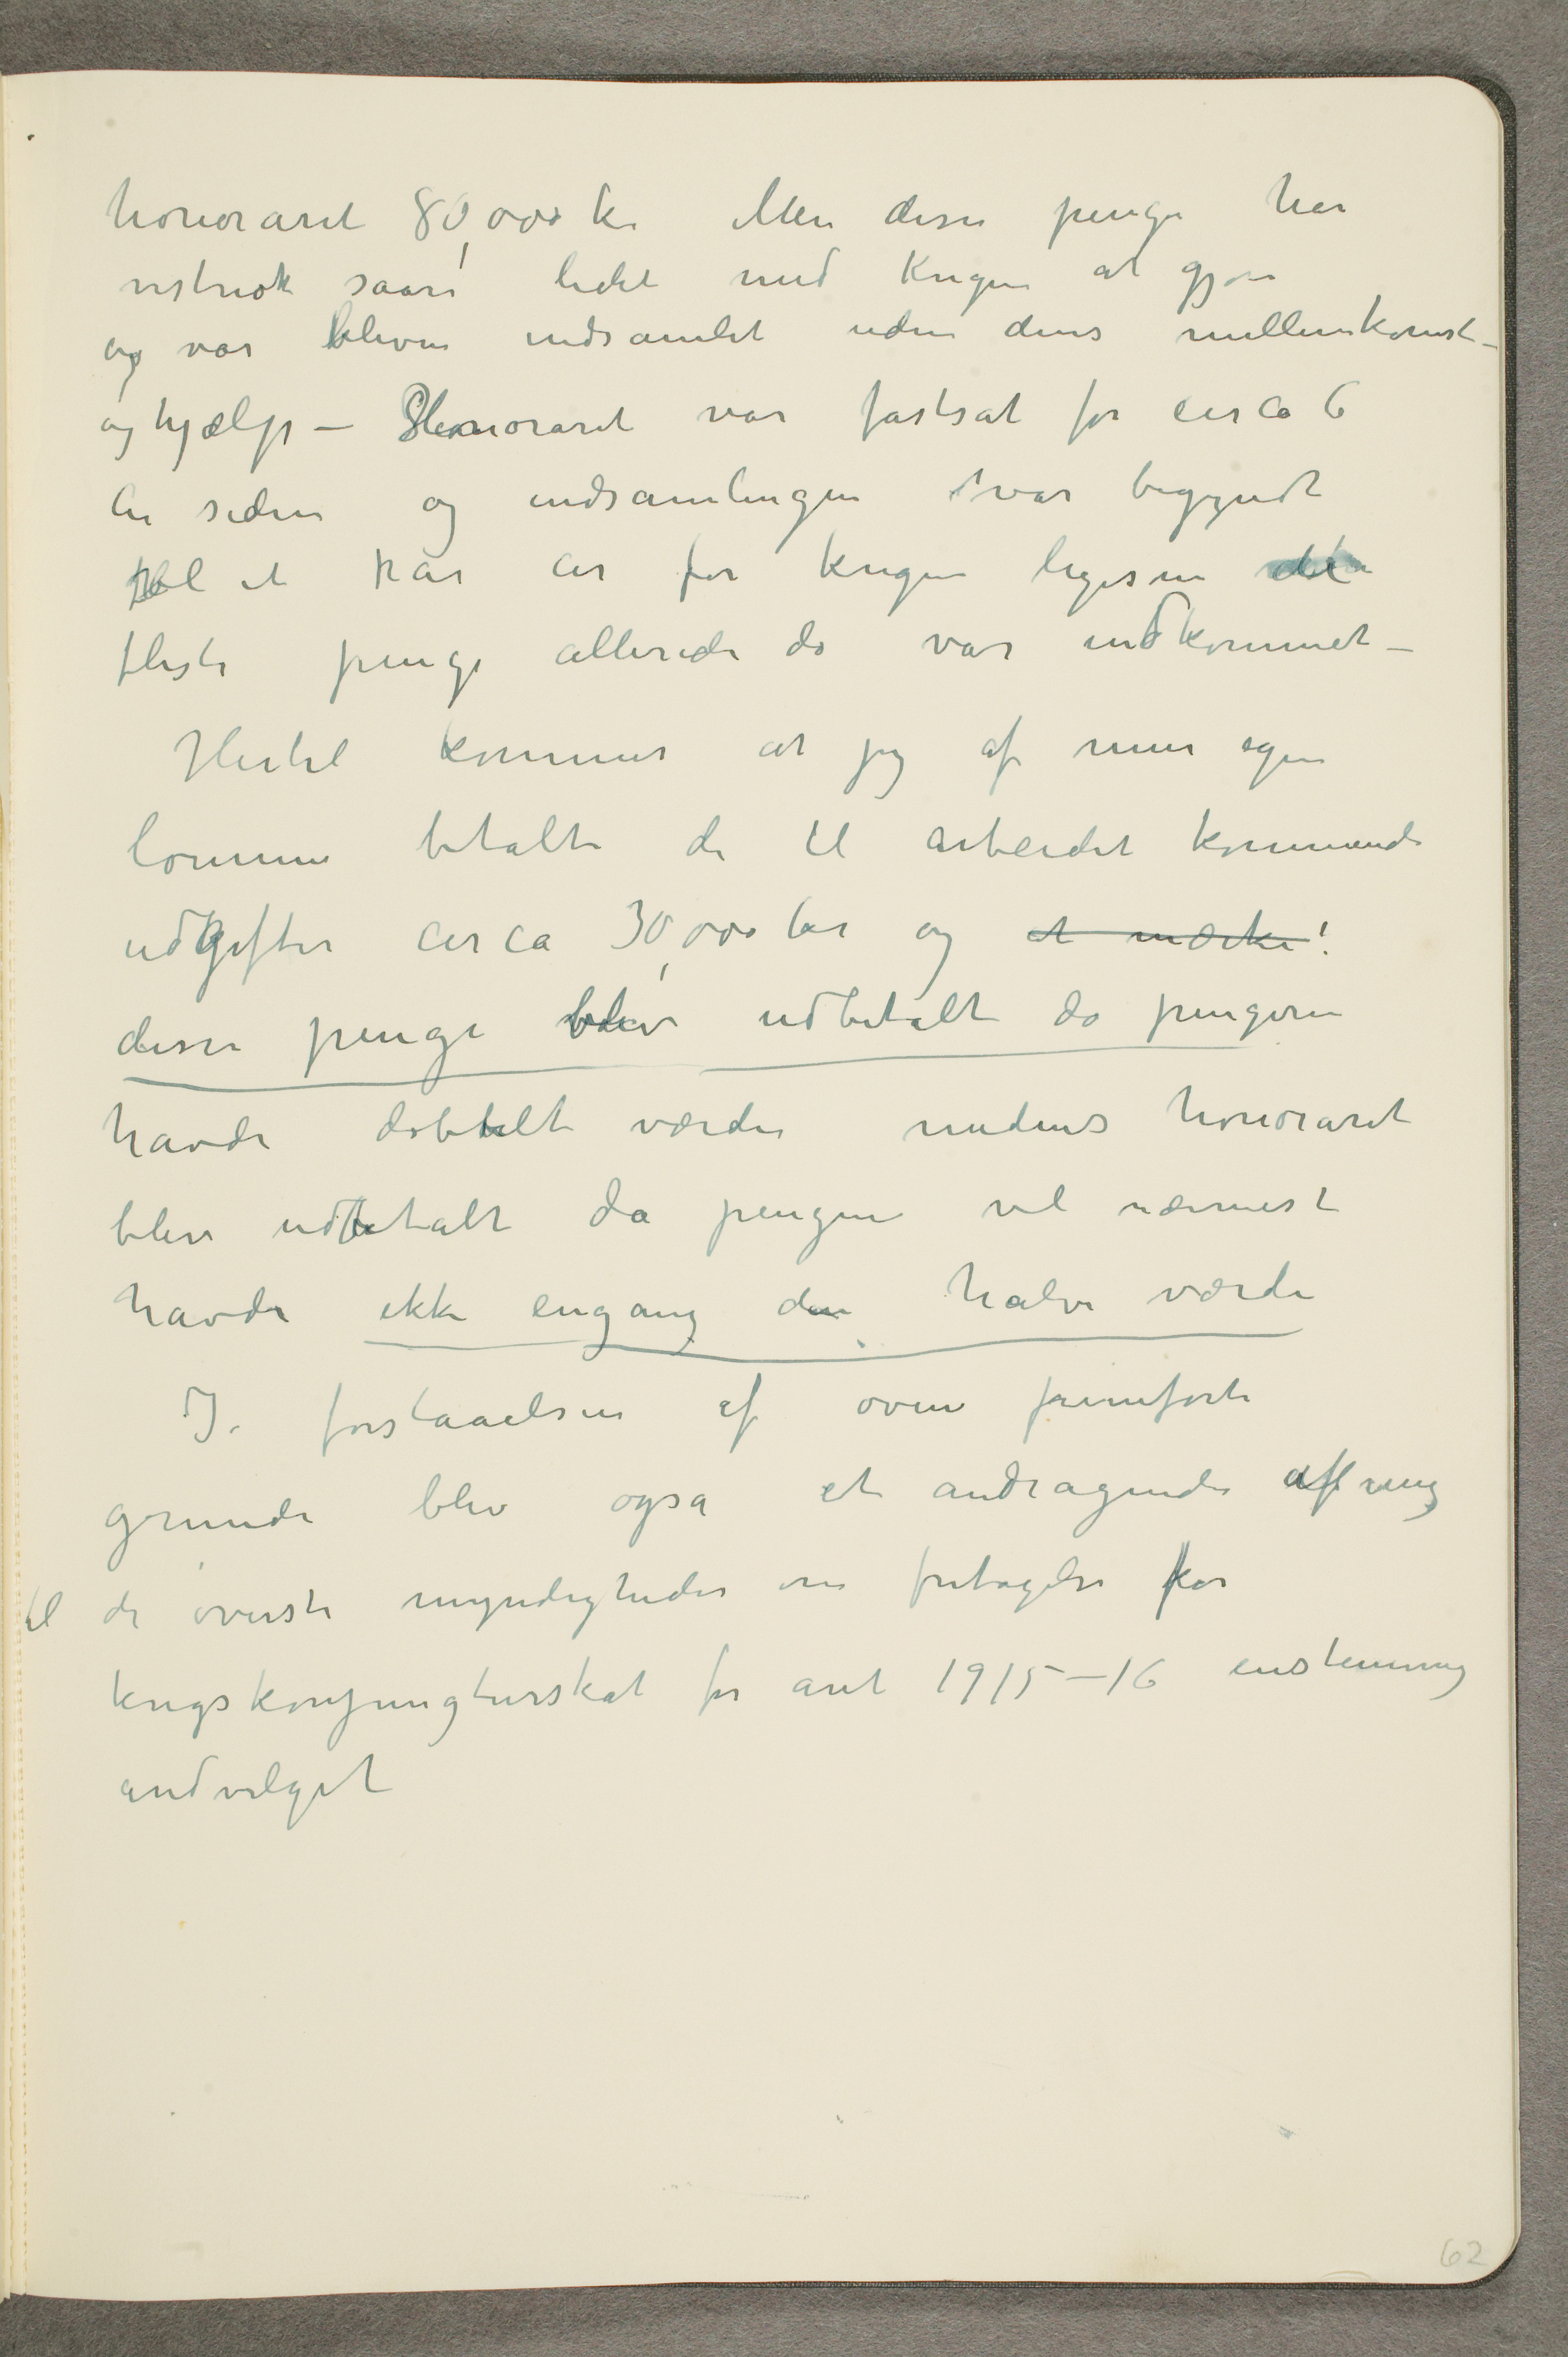 honoraret 80,000 kr Men disse penge har
vistnok saare lidet med Krigen at gjøre
og var bleven indsamlet uden dens mellemkomst –
og hjælp – Honoraret var fastsat for circa 6
år siden og indsamlingen var begyndt
et par år før krigen ligesom de
fleste penge allerede da var indkommet –
Hertil kommer at jeg af min egen
lomme betalte de til arbeidet kommende
udgifter circa 30,000 kr og et mærke!
disse penge blev udbetalt da pengene
havde dobbelt værdi medens honoraret
blev udbetalt da pengene vel nærmest
havde ikke engang den halve værdi
I forståaelsen af oven fremførte
grunde blev også et andragende af mig
til de øverste myndigheder om fritagelse for
krigskonjungturskat for året 1915–16 enstemmig
andvilget
62